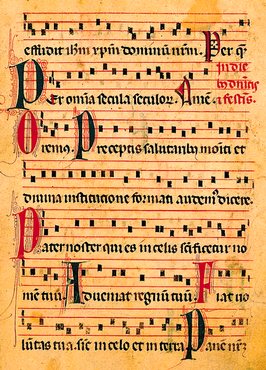 effudit ihm xpm dominū nrm. Per q̄
in die
bꝫ dnīcis
⁊ festis.
Per omnia secula seculorꝫ. Amē.
Oremus. Preceptis salutaribꝫ moniti et
diuina institutione formati audemꝰ dicere.
Pater noster qui es in celis scificetur no
mē tuū. Adueniat regnū tuū. Fiat uo
lūtas tua. sic in celo et in terra. Panē nrꝫ